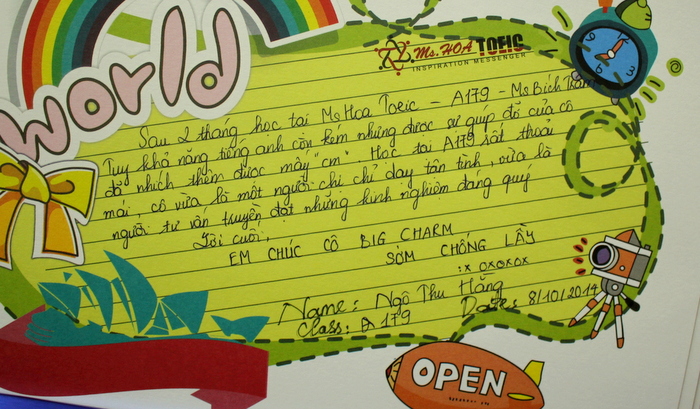 world
Ms. HOA TOEIC
INSPIRATION MESSENGER
Sau 2 tháng học tại Ms Hoa Toeic - A179 - Ms Bích Trâm
Tuy khả năng tiếng anh còn kém nhưng được sự giúp đỡ của cô
đã nhích thêm được mấy "cm". Học tại A179 rất thoải
mái, cô vừa là một người chị chỉ dạy tận tình, vừa là
người tư vấn truyền đạt những kinh nghiệm đáng quý
Lời cuối,
EM CHÚC CÔ BIG CHARM
SỚM CHỐNG LẦY
:x oxoxox
Name: Ngô Thu Hằng
Date: 8/10/2014
Class: A179
OPEN